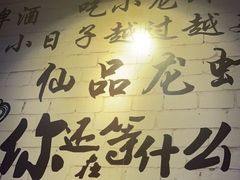 啤酒 吃小龙虾
小日子越过越
仙品龙虾
你还在等什么